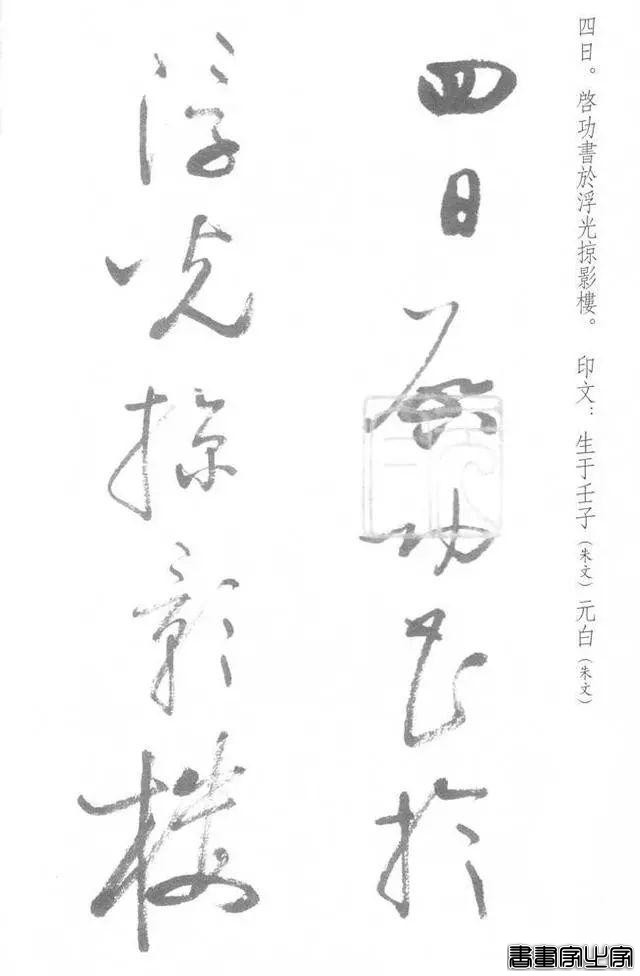 四日。啓功書於浮光掠影樓。 印文：生于壬子（朱文）元白（朱文）
四日啓功書於
浮光掠影樓
書畫家之家